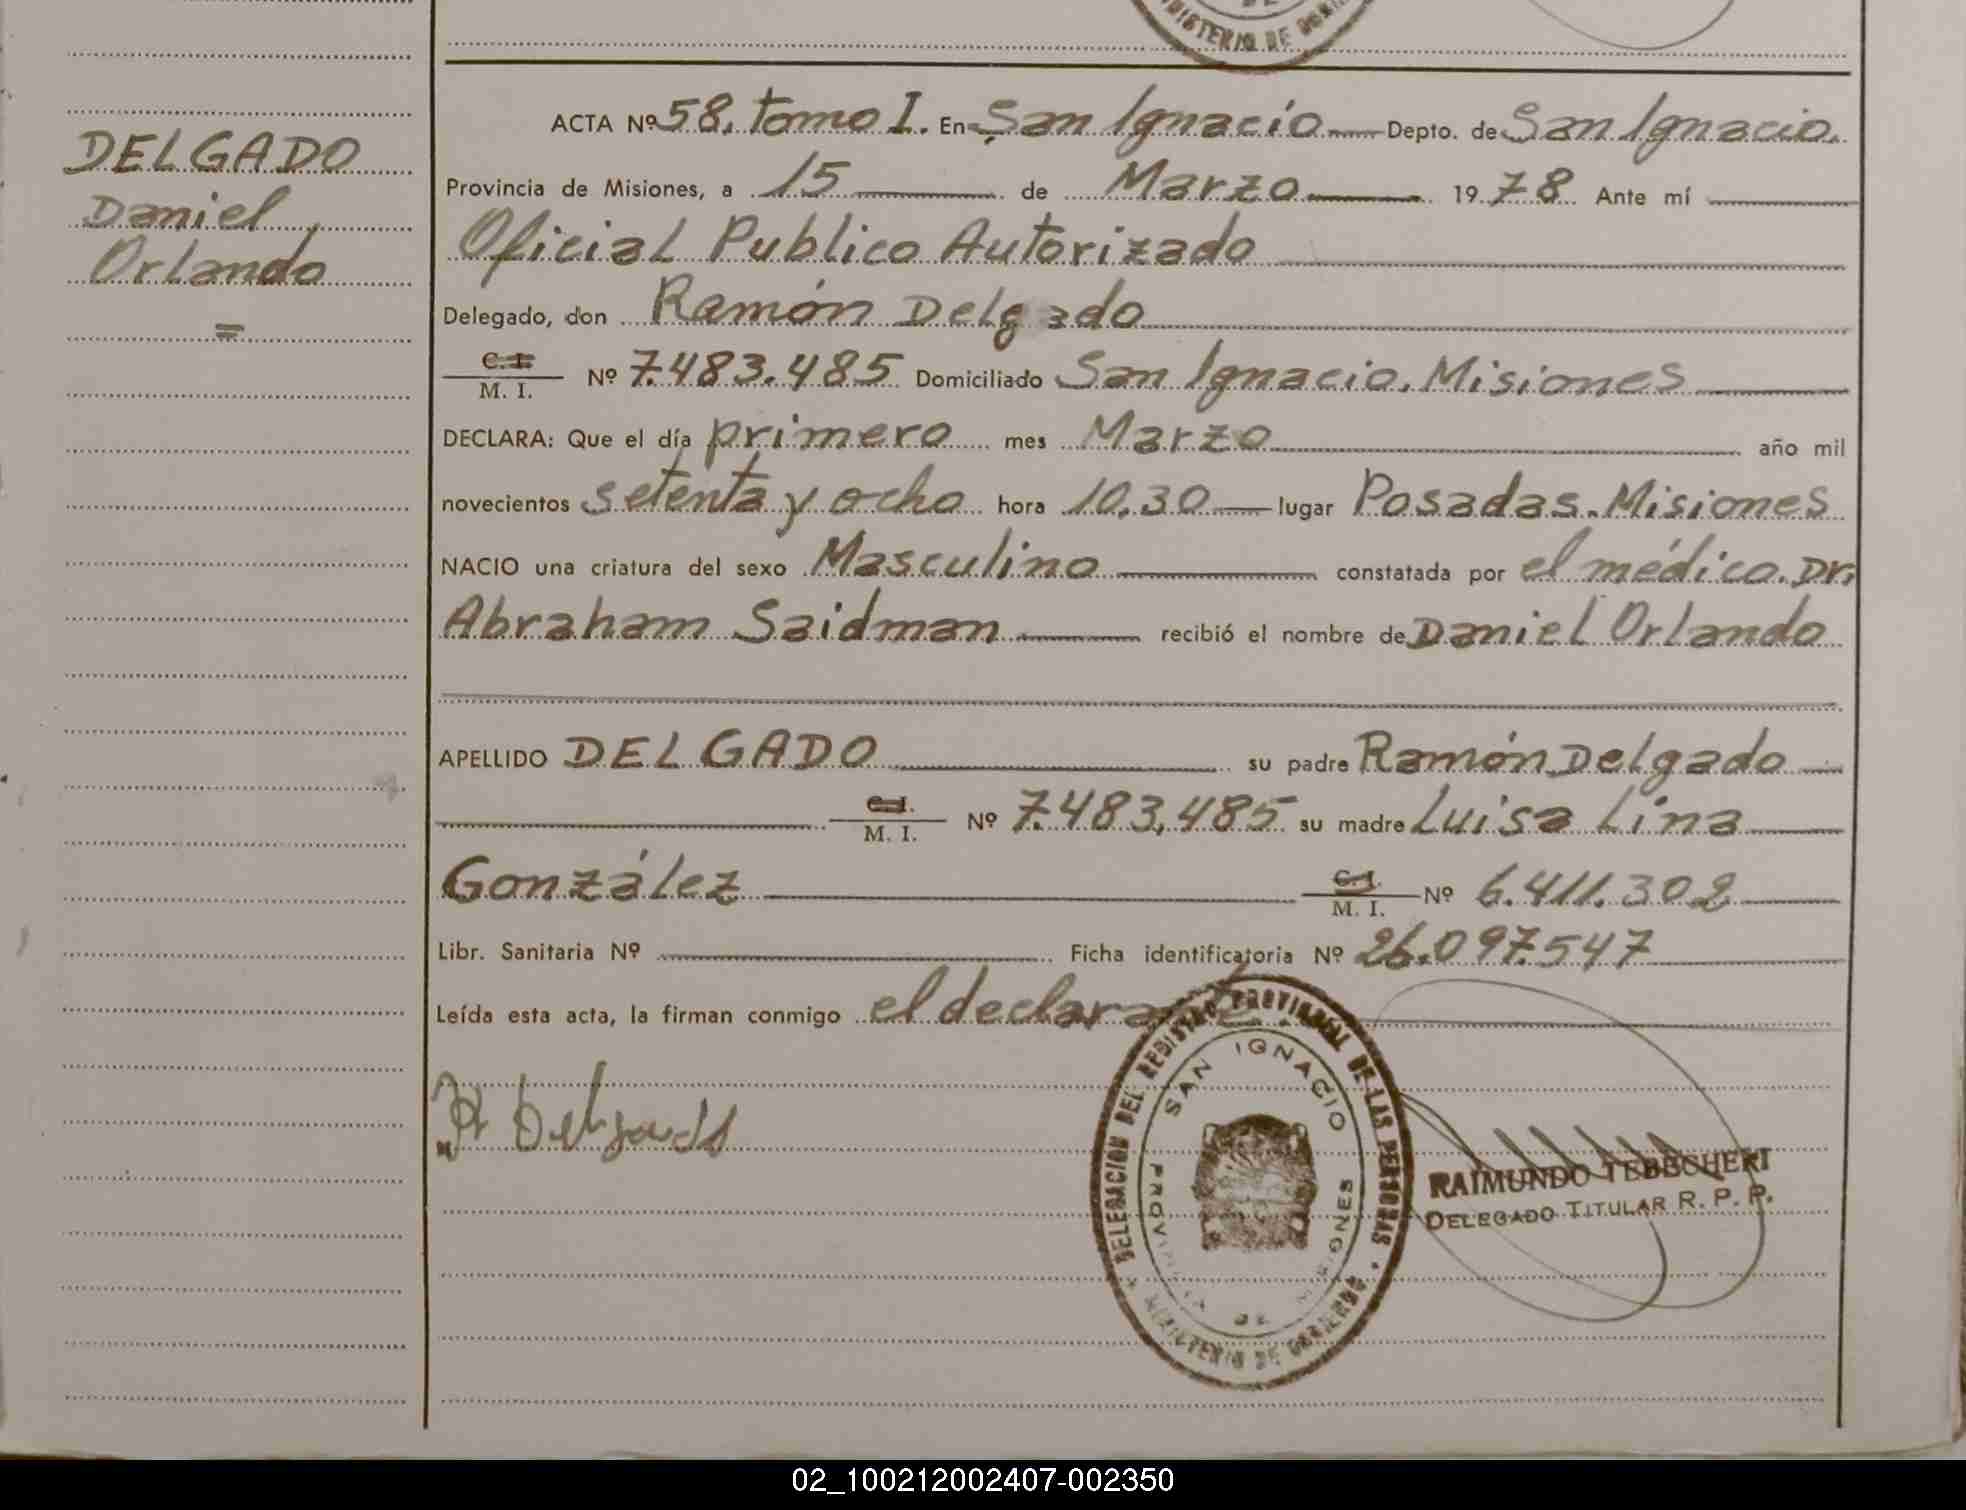 MINISTERIO DE GOBIERNO
DELGADO
Daniel
Orlando
=
ACTA Nº 58, tomo I. En San Ignacio Depto. de San Ignacio.
Provincia de Misiones, a 15 de Marzo 1978 Ante mí
Oficial Publico Autorizado
Delegado, don Ramón Delgado
C.I. M. I. Nº 7.483.485 Domiciliado San Ignacio. Misiones
DECLARA: Que el día primero mes Marzo año mil
novecientos setenta y ocho hora 10.30 lugar Posadas. Misiones
NACIO una criatura del sexo Masculino constatada por el médico. Dr.
Abraham Saidman recibió el nombre de Daniel Orlando
APELLIDO DELGADO su padre Ramón Delgado
C.I. M. I. Nº 7.483,485 su madre Luisa Lina
González C.I. M. I. Nº 6.411.302
Libr. Sanitaria Nº Ficha identificatoria Nº 26.097.547
Leída esta acta, la firman conmigo el declarante.
R Delgado
DELEGACION DEL REGISTRO PROVINCIAL DE LAS PERSONAS
SAN IGNACIO
PROVINCIA DE MISIONES
MINISTERIO DE GOBIERNO
RAIMUNDO TEBECHERI
DELEGADO TITULAR R. P. P.
02_100212002407-002350